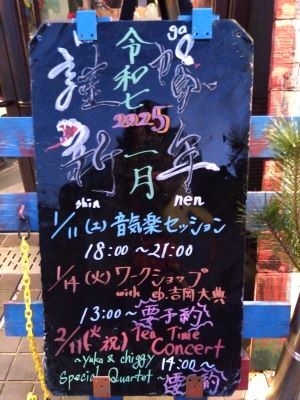 謹賀 ga
新年
shin nen
令和七
2025
一月
1/11(土)音気楽セッション
18:00~21:00
1/14(火)ワークショップ
with eb.吉岡大典
13:00~要予約
2/11(火祝)Tea Time
Concert
~yuka & chiggy
Special Quartet~ 14:00~
要予約